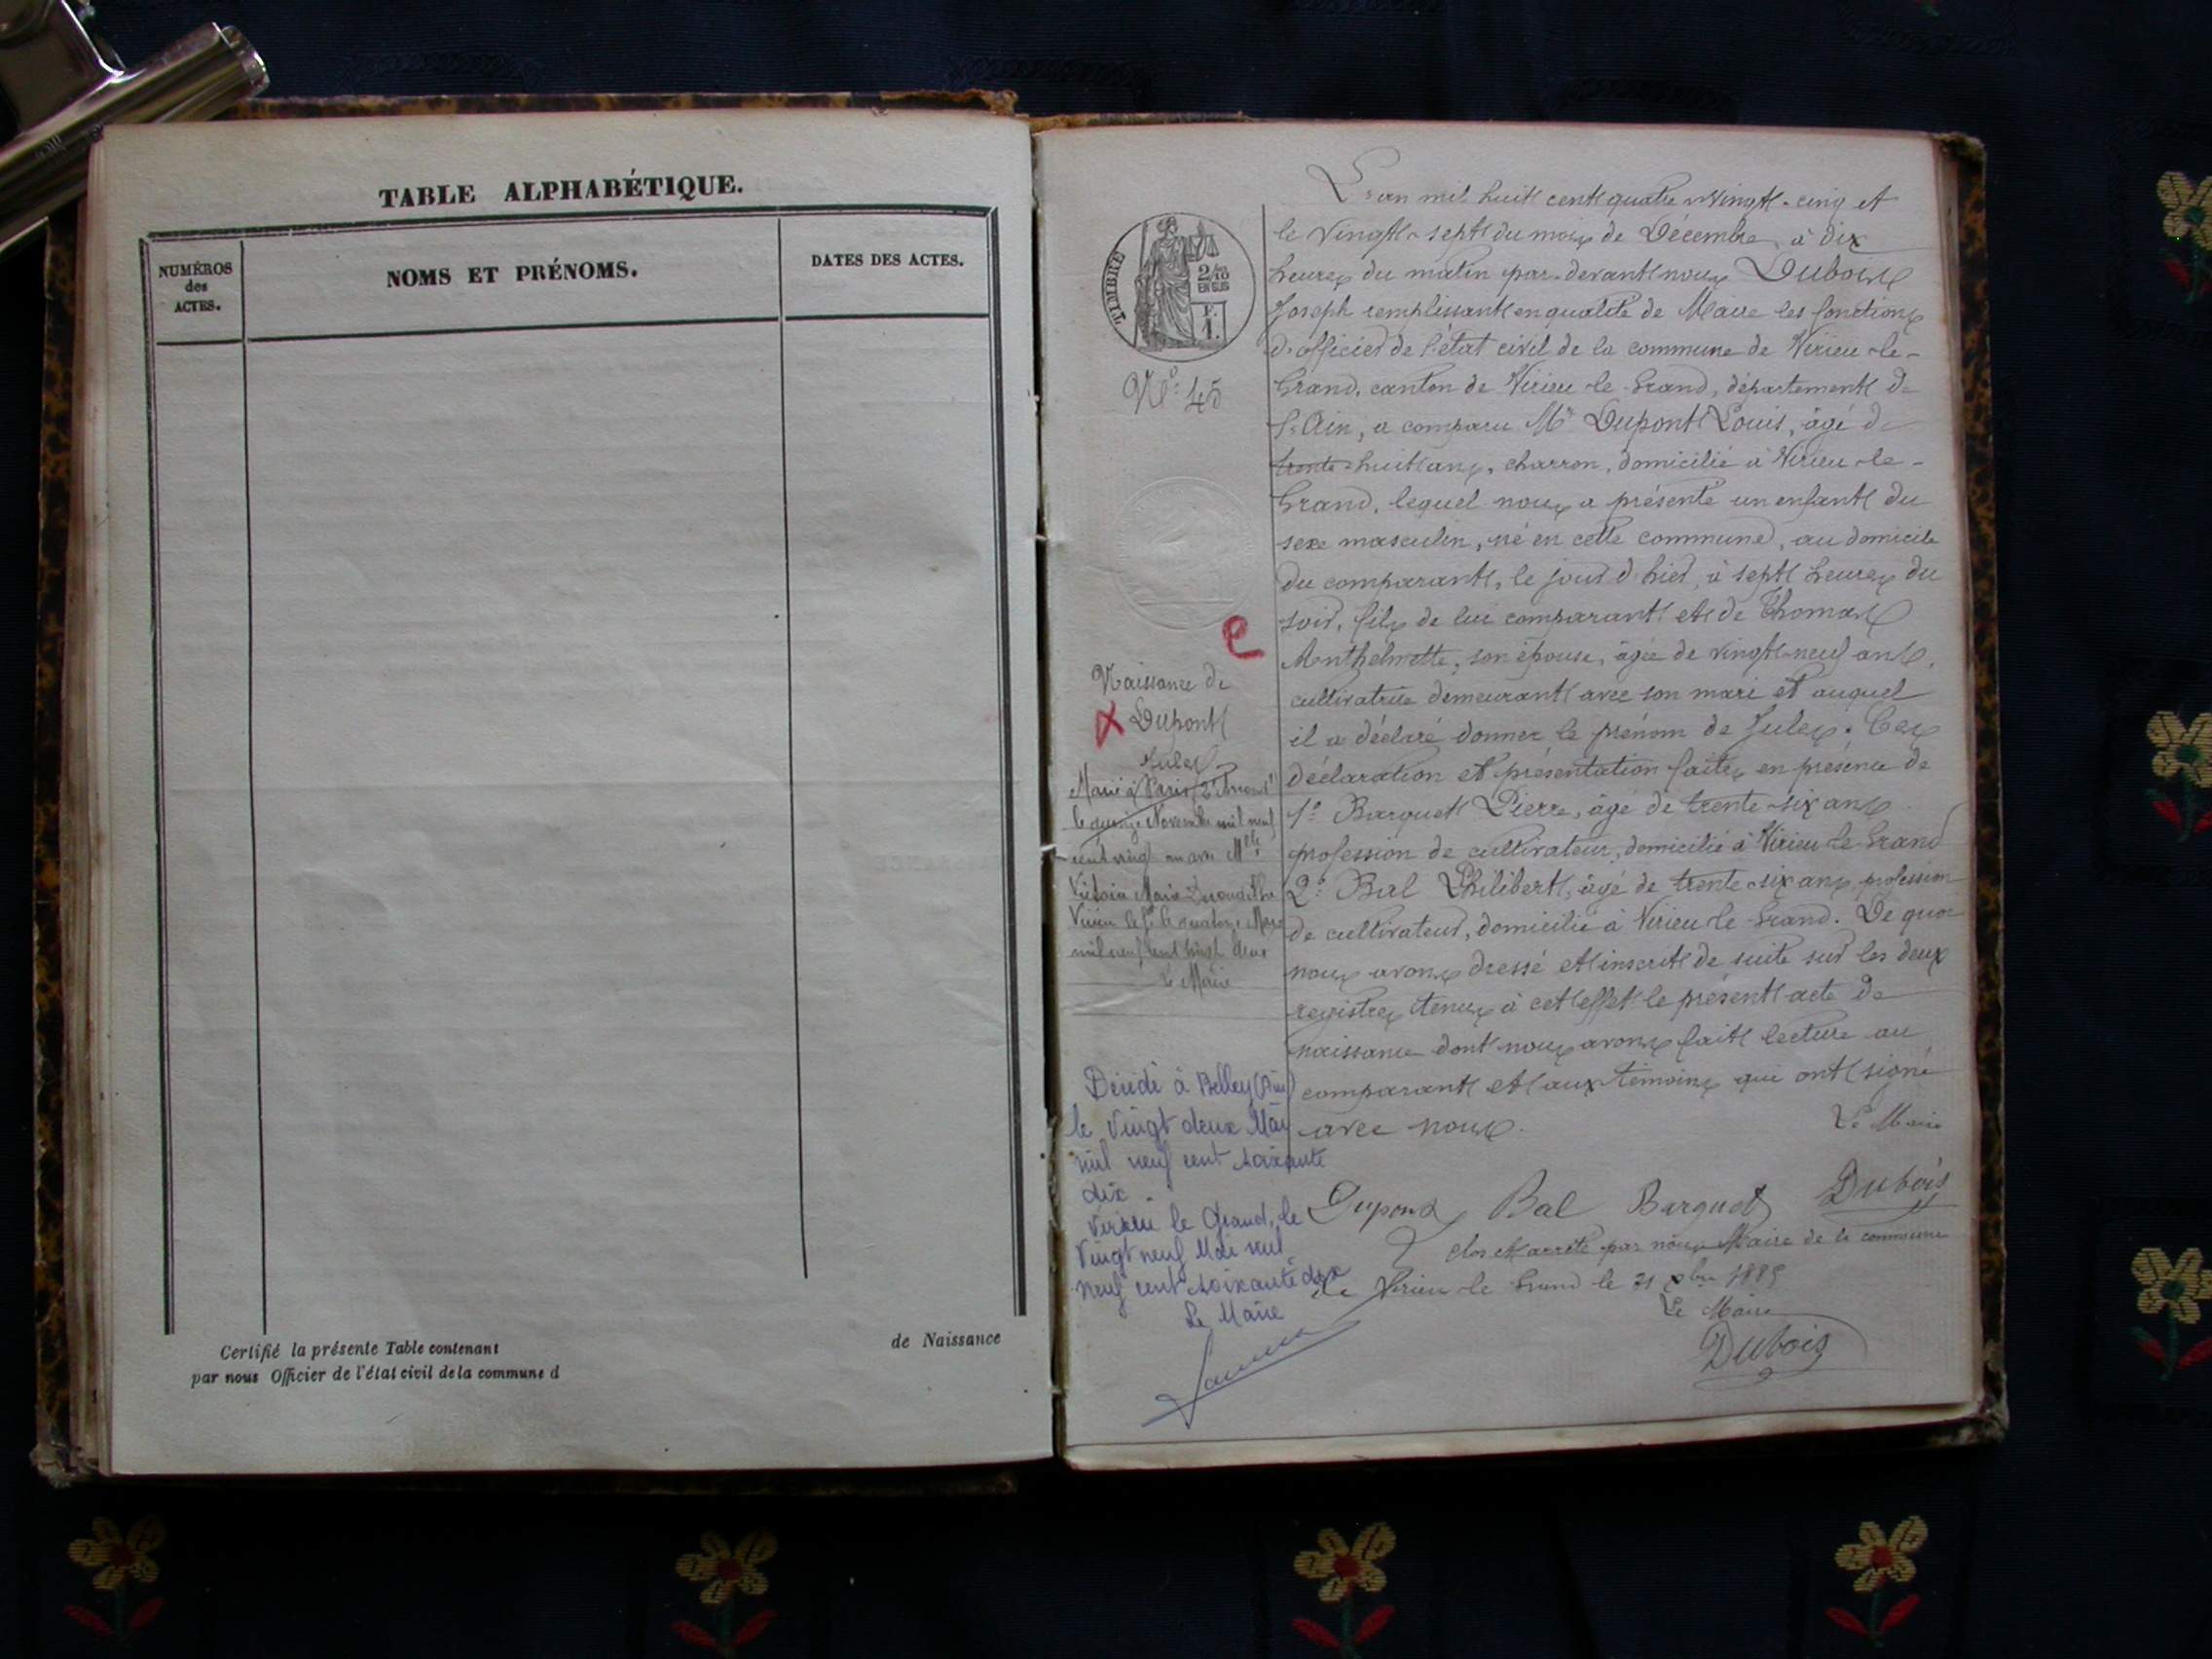 TABLE ALPHABÉTIQUE.
NUMÉROS
des
ACTES.
NOMS ET PRÉNOMS.
DATES DES ACTES.
Certifié la présente Table contenant
de Naissance
par nous Officier de l'état civil de la commune d
TIMBRE
2/10
EN SUS
F.
1.
No. 45
e
Naissance de
x Dupont
Jules
Marié à Paris
le quinze Novembre mil neuf
cent vingt un avec Mlle
Marie
Virieu le Gd le quatorze Mars
mil neuf cent vingt deux
Le Maire
Décédé à Belley (Ain)
le vingt deux Mai
mil neuf cent soixante
dix.
Virieu le Grand, le
vingt neuf Mai mil
neuf cent soixante dix
Le Maire
L'an mil huit cent quatre-vingt-cinq et
le vingt-sept du mois de Décembre, à dix
heures du matin par-devant nous Dubois
Joseph remplissant en qualité de Maire les fonctions
d'officier de l'état civil de la commune de Virieu-le-
Grand, canton de Virieu-le-Grand, département de
l'Ain, a comparu Mr Dupont Louis, âgé de
trente-huit ans, charron, domicilié à Virieu-le-
Grand, lequel nous a présenté un enfant du
sexe masculin, né en cette commune, au domicile
du comparant, le jour d'hier, à sept heures du
soir, fils de lui comparant et de Thomas
Anthelmette, son épouse, âgée de vingt-neuf ans,
cultivatrice demeurant avec son mari et auquel
il a déclaré donner le prénom de Jules. Ces
déclaration et présentation faites en présence de
1° Barquet Pierre, âgé de trente-six ans
profession de cultivateur, domicilié à Virieu-le-Grand
2° Bal Philibert, âgé de trente-six ans, profession
de cultivateur, domicilié à Virieu-le-Grand. De quoi
nous avons dressé et inscrit de suite sur les deux
registres tenus à cet effet le présent acte de
naissance dont nous avons fait lecture au
comparant et aux témoins qui ont signé
avec nous.
Le Maire
Dupond Bal Barquet Dubois
Clos et arrêté par nous Maire de la commune
de Virieu-le-Grand le 31 Xbre 1885
Le Maire
Dubois